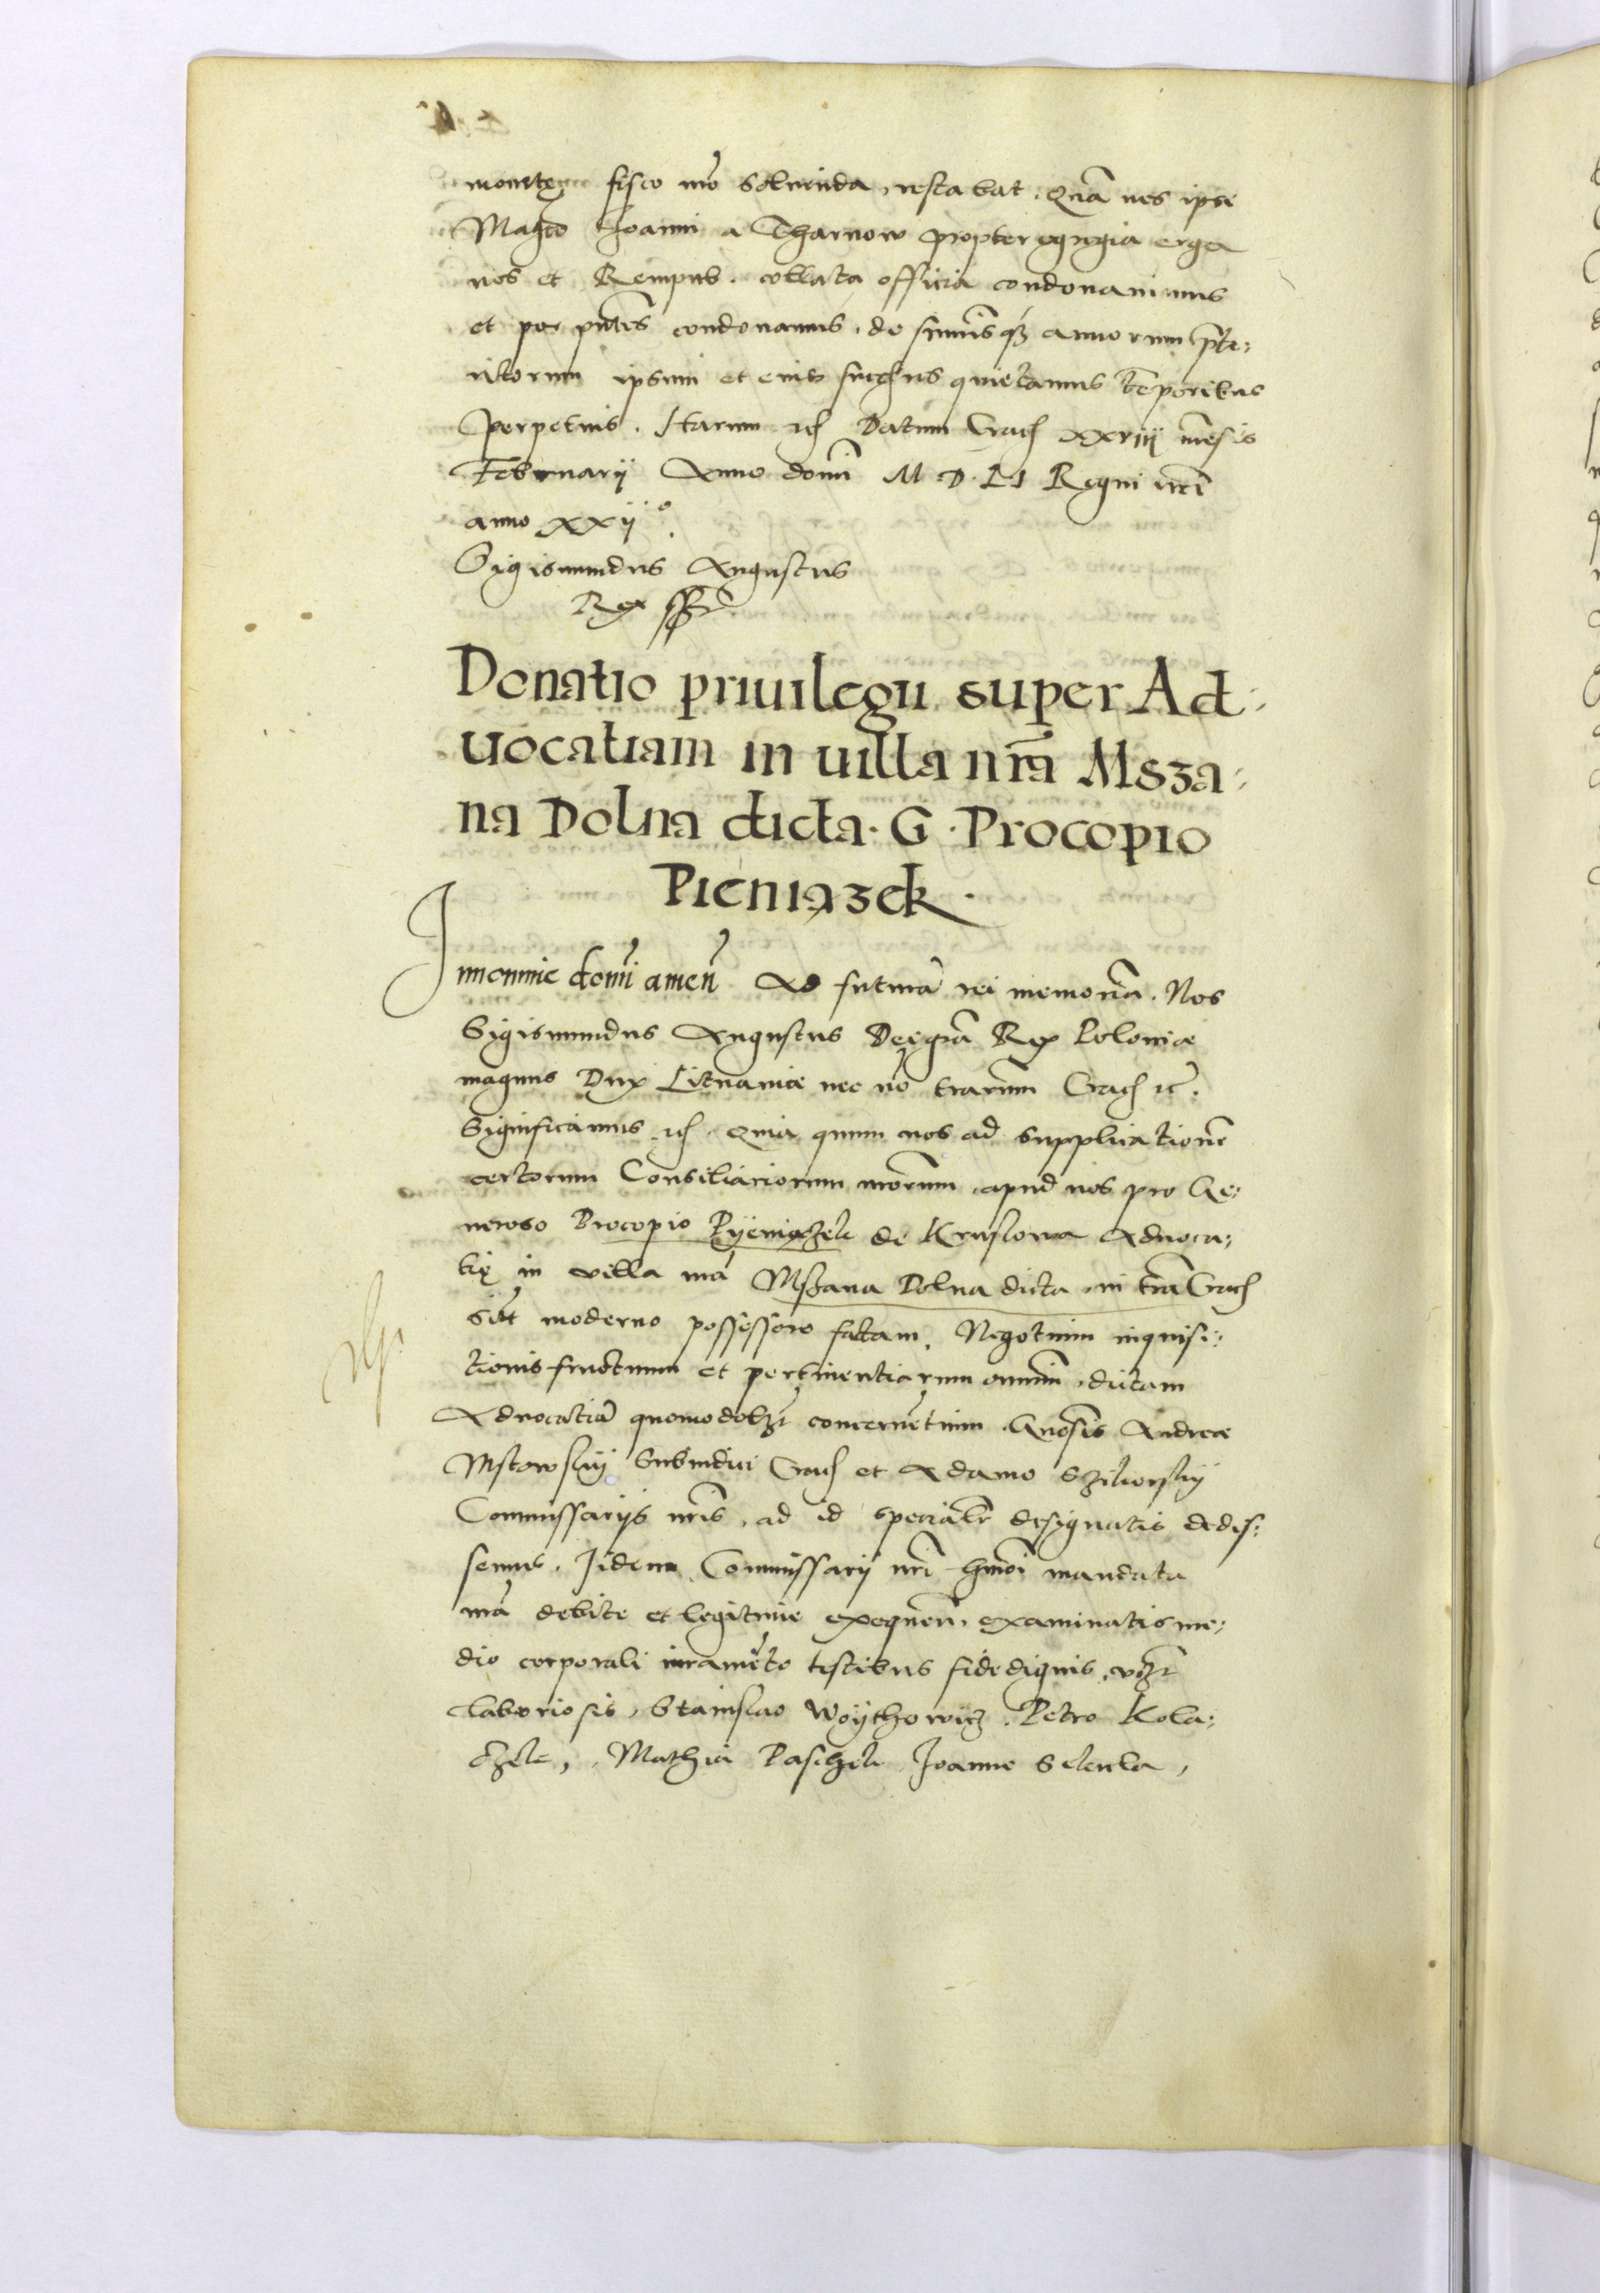 fisco nrō soluenda, restabat. Quā nos ipse
Magco Joanni a Tharnow propter egregia erga
nos et Rempub. collata officia condonauimus
et per pntēs condonamus, de summisqȝ annorum prete:
ritorum ipsum et eius quietamus tēporibus
perpetuis. Harum Datum Crac xxviij mēsis
Februarii Anno domī M.D.LI Regni nrī
anno xxij°.
Sigismundus Augustus
Rex sst
Donatio priuilegii super Ad:
uocatiam in uilla nrā Msza:
na Dolna dicta. G. Procopio
Pieniązek.
Innomine domī amen Ad futurā rei memoriā. Nos
Sigismundus Augustus Dei grā Rex Poloniæ
magnus Dux Lituaniæ nec nō trarum Crac etc.
Significamus Quia quum nos ad supplicationē
certorum Consiliariorum nrorum, apud nos pro Ge:
neroso Procopio Pyeniązek de Kruslowa Aduoca:
tię in villa nrā Mszana Dolna dicta, in trā Crac
sit moderno possessore factam. Negotium inquisi:
tionis fructuum et pertinentiarum omnium, dictam
Aduocatiā quomodolzt concernētium Gnosis Andreæ
Mstowskij Subiudici Crac et Adamo
Commissarijs nrīs, ad id specialr designatis dedis:
semus. Jidem Commissarij nrī hmōi mandata
nrā debite et legitime exequen, examinatis me:
dio corporali iuramēto testibus fidedignis, vzt
laboriosis, Stanislao Woythowicz. Petro Kola:
czek, Mathia Paschek Joanne